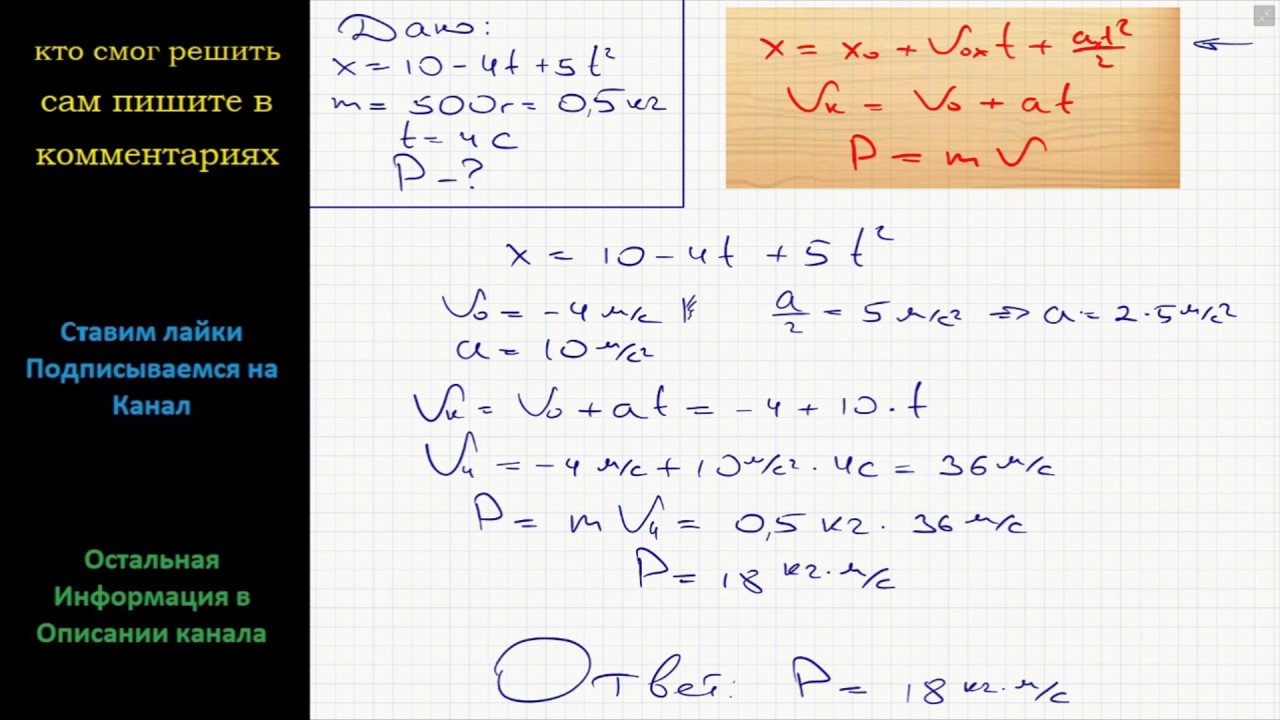 кто смог решить
сам пишите в
комментариях
Ставим лайки
Подписываемся на
Канал
Остальная
Информация в
Описании канала
Дано:
x = 10 - 4t + 5t²
m = 500г = 0,5 кг
t = 4 с
P - ?
x = x₀ + V₀ₓt + aₓt²/2
Vк = V₀ + at
P = mV
x = 10 - 4t + 5t²
V₀ = -4 м/с a/2 = 5 м/с² => a = 2·5 м/с²
a = 10 м/с²
Vк = V₀ + at = -4 + 10·t
V₄ = -4 м/с + 10 м/с² · 4с = 36 м/с
P = mV₄ = 0,5 кг · 36 м/с
P = 18 кг·м/с
Ответ: P = 18 кг·м/с